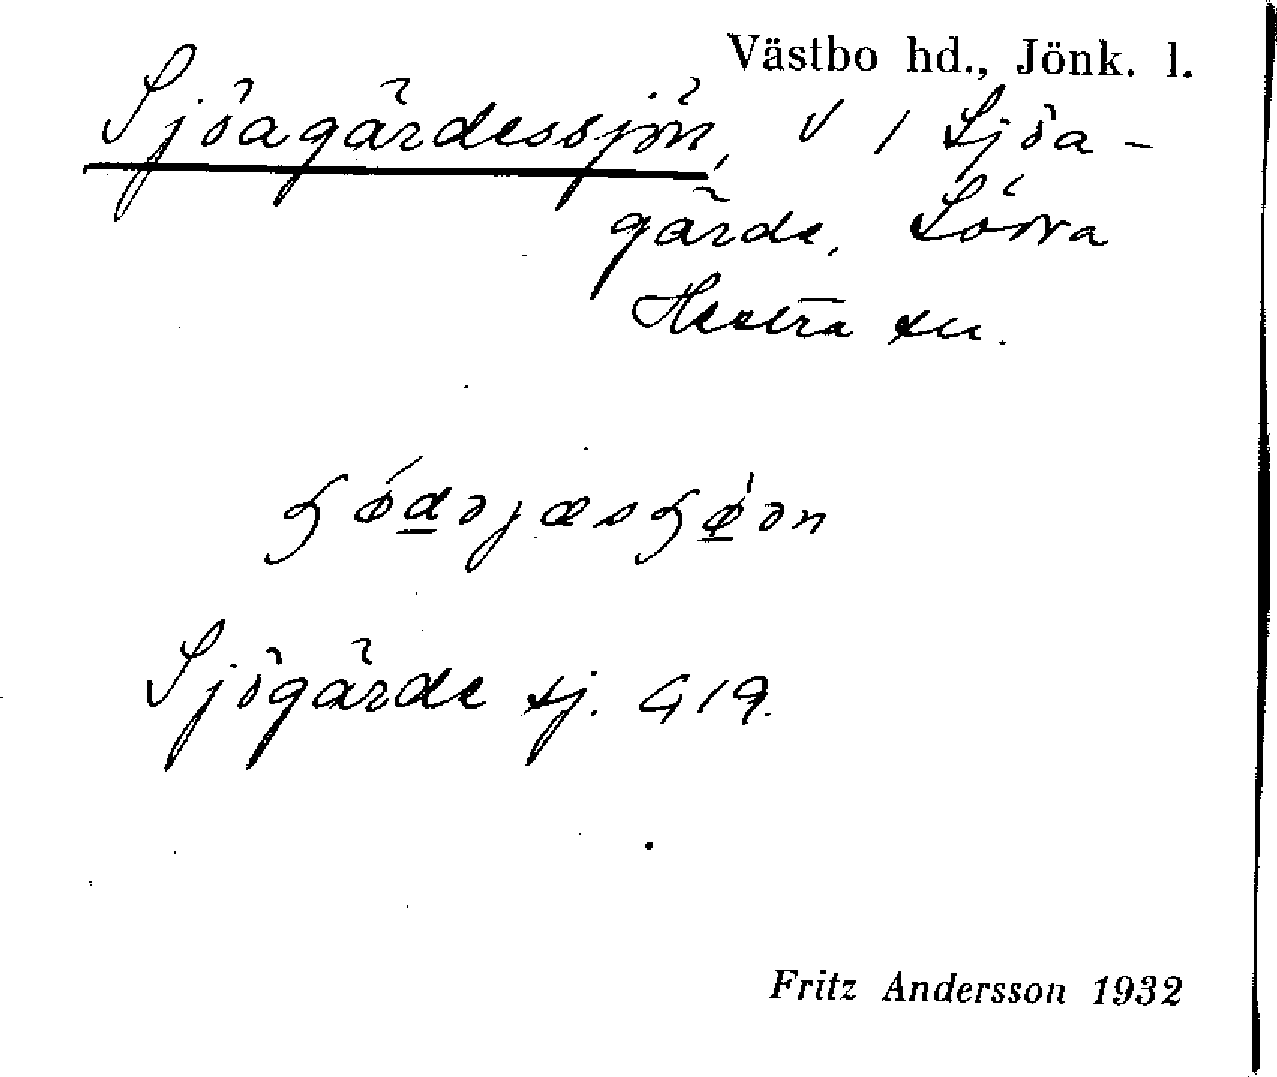 Västbo hd., Jönk. l.
Sjöagärdessjön, V / Sjöa-
gärde, Södra
Hestra sn.
Sjögärde sj. G 19.
Fritz Andersson 1932